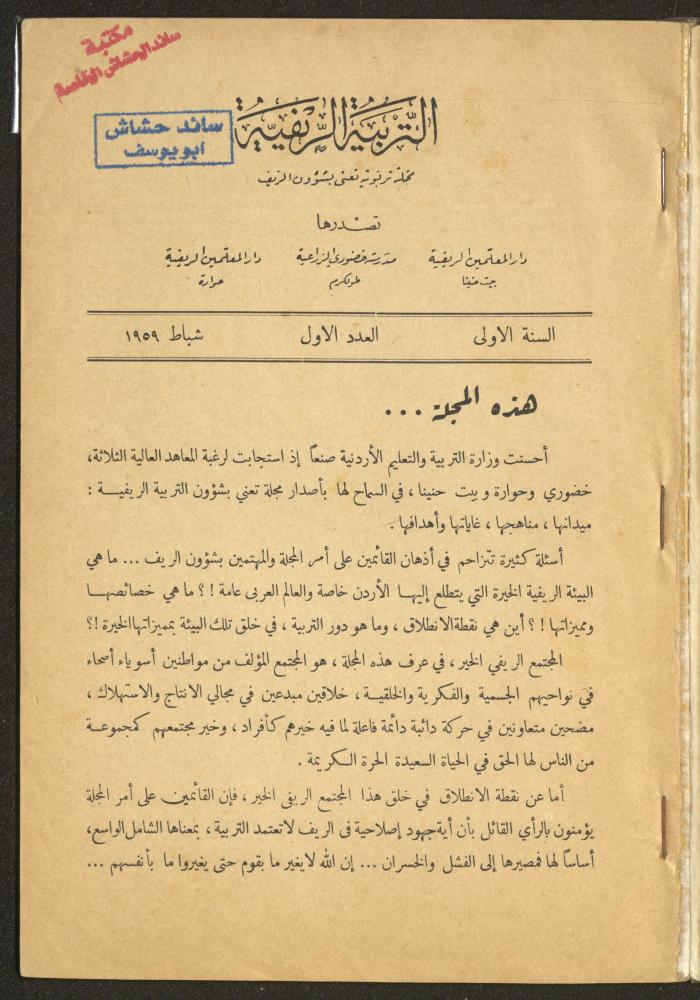 مكتبة
سائد الحشاش الخاصة
سائد حشاش
ابو يوسف
التربية الريفية
مجلة تربوية تعنى بشؤون الريف
تصدرها
دار المعلمين الريفية مدرسة خضوري الزراعية دار المعلمين الريفية
بيت حنينا طولكرم حوارة
السنة الاولى العدد الاول شباط ١٩٥٩
هذه المجلة ...
أحسنت وزارة التربية والتعليم الأردنية صنعاً إذ استجابت لرغبة المعاهد العالية الثلاثة،
خضوري وحوارة وبيت حنينا ، في السماح لها بأصدار مجلة تعني بشؤون التربية الريفيــة :
ميدانها ، مناهجها ، غاياتها وأهدافها .
أسئلة كثيرة تتزاحم في أذهان القائمين على أمر المجلة والمهتمين بشؤون الريف ... ما هي
البيئة الريفية الخيرة التي يتطلع إليهــا الأردن خاصة والعالم العربى عامة ! ؟ ما هي خصائصهــا
ومميزاتها ! ؟ أين هي نقطة الانطلاق ، وما هو دور التربية ، في خلق تلك البيئة بمميزاتها الخيرة !؟
المجتمع الريفي الخير ، في عرف هذه المجلة ، هو المجتمع المؤلف من مواطنين أسوياء أصحاء
في نواحيهم الجسمية والفكرية والخلقيــة ، خلاقين مبدعين في مجالي الانتاج والاستهلاك ،
مضحين متعاونين في حركة دائبة دائمة فاعلة لما فيه خيرهم كأفراد ، وخير مجتمعهم كمجموعــة
من الناس لها الحق في الحياة السعيدة الحرة الـكريمة .
أما عن نقطة الانطلاق في خلق هذا المجتمع الريفى الخير ، فإن القائمين على أمر المجلة
يؤمنون بالرأي القائل بأن أية جهود إصلاحية فى الريف لا تعتمد التربية ، بمعناها الشامل الواسع،
أساساً لها فمصيرها إلى الفشل والخسران ... إن الله لا يغير ما بقوم حتى يغيروا ما بأنفسهم ...